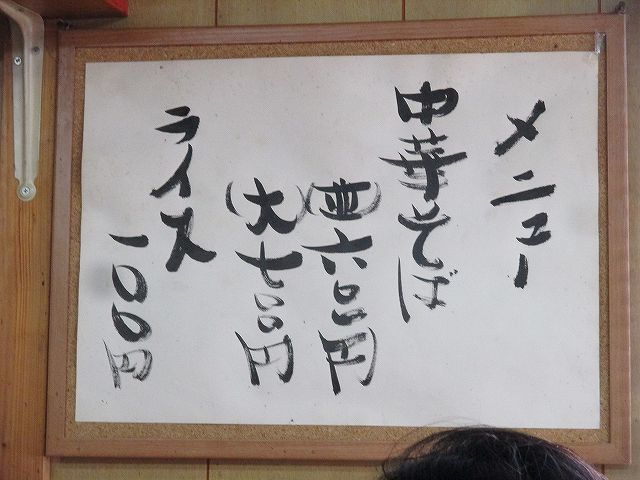 メニュー
中華そば
(並)六〇〇円
(大)七〇〇円
ライス
一〇〇円